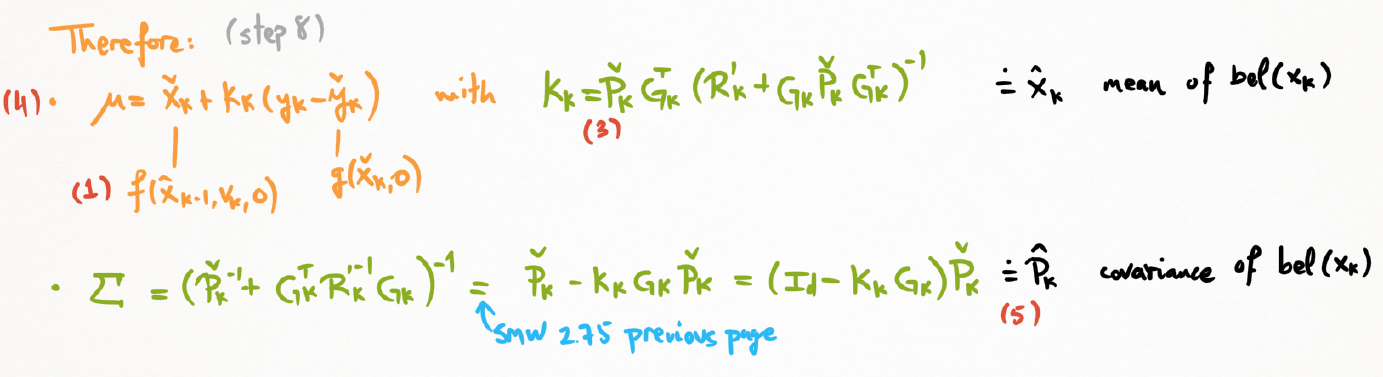 Therefore: (step 8)
(4) · μ = x̌ₖ + Kₖ (yₖ - y̌ₖ) with Kₖ = P̌ₖ Gₖᵀ (R'ₖ + Gₖ P̌ₖ Gₖᵀ)⁻¹ ≐ x̂ₖ mean of bel(xₖ)
(3)
(1) f(x̂ₖ₋₁, vₖ, 0) g(x̌ₖ, 0)
· Σ = (P̌ₖ⁻¹ + Gₖᵀ R'ₖ⁻¹ Gₖ)⁻¹ = P̌ₖ - Kₖ Gₖ P̌ₖ = (Id - Kₖ Gₖ) P̌ₖ ≐ P̂ₖ covariance of bel(xₖ)
SMW 2.75 previous page (5)